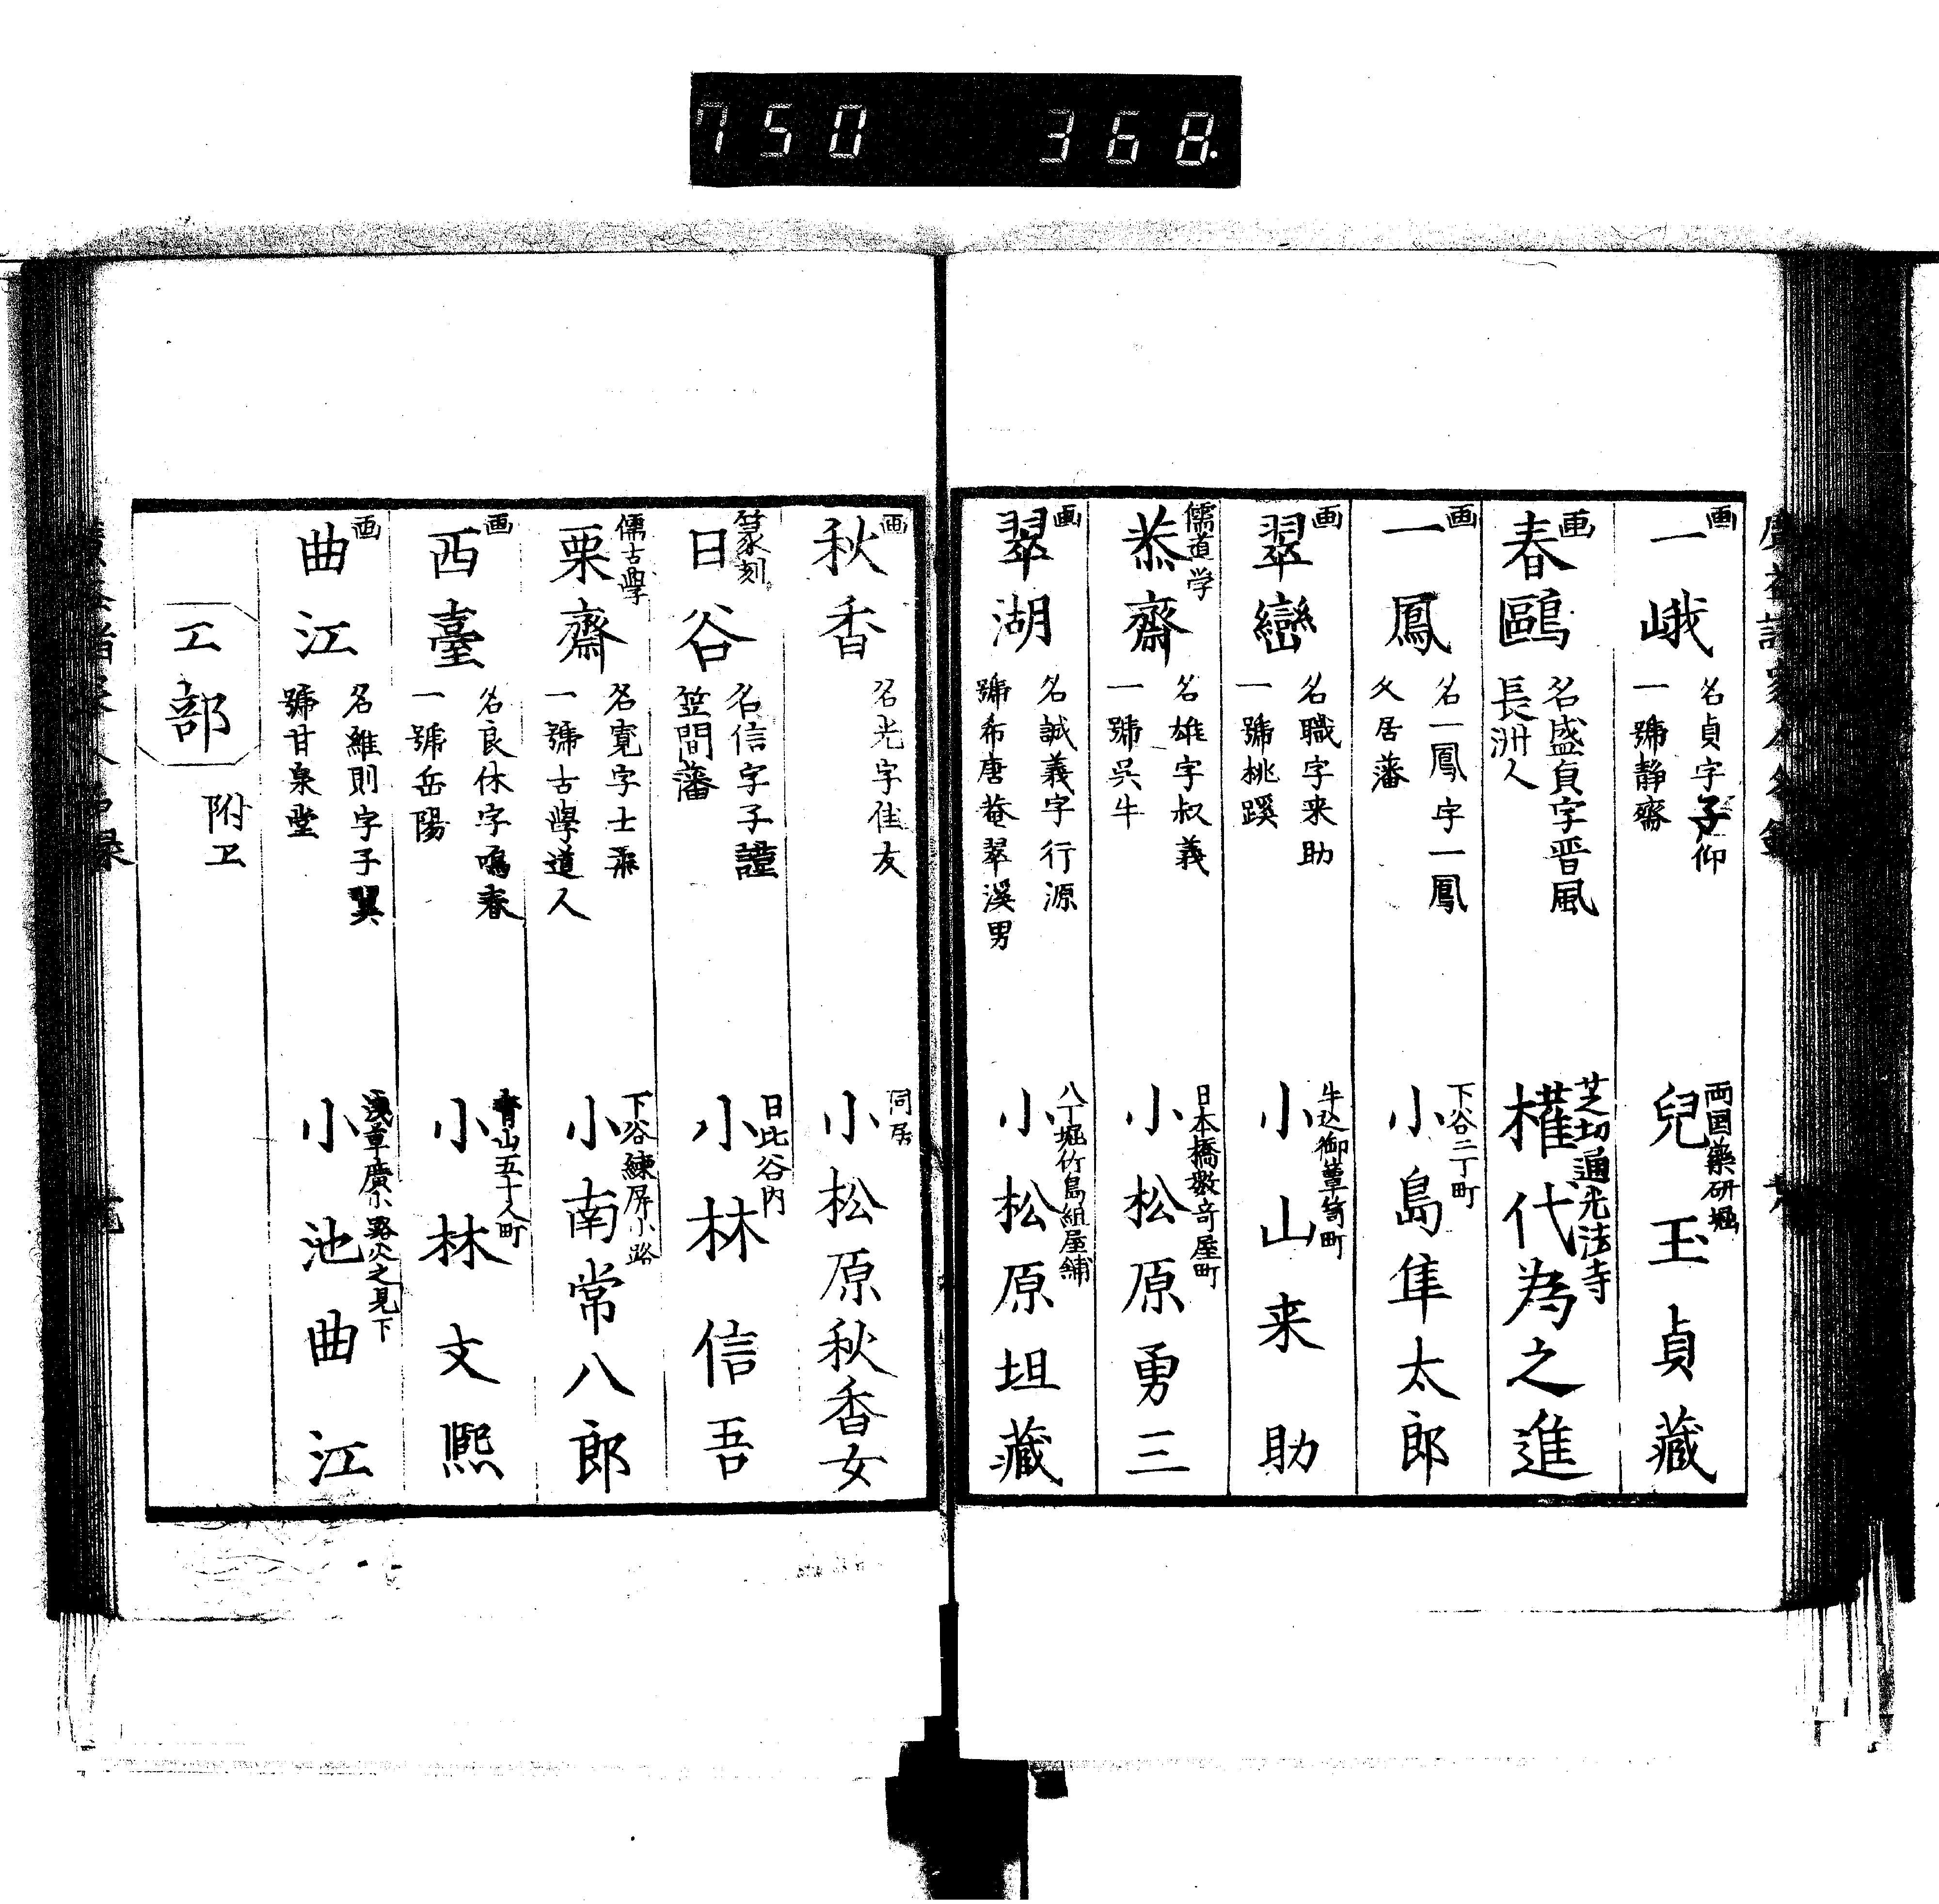 750 368.
画
一峨
名貞字子仰
一號靜齋
両国藥研堀
兒玉貞藏
画
春鷗
名盛貞字晋風
長洲人
芝切通光法寺
權代為之進
画
一鳳
名一鳳字一鳳
久居藩
下谷二丁町
小島隼太郎
画
翠巒
名職字来助
一號桃蹊
牛込御簞笥町
小山来助
儒道学
恭齋
名雄字叔義
一號呉牛
日本橋數奇屋町
小松原勇三
画
翠湖
名誠義字行源
號希唐菴翠溪男
八丁堀竹島組屋鋪
小松原坦藏
画
秋香
名光字佳友
同居
小松原秋香女
篆刻
日谷
名信字子謹
笠間藩
日比谷内
小林信吾
儒古學
栗齋
名寛字士栗
一號古學道人
下谷練屏小路
小南常八郎
画
西臺
名良休字鳴春
一號岳陽
青山五十人町
小林文熈
画
曲江
名維則字子翼
號甘泉堂
浅草廣小路火之見下
小池曲江
エ部
附ヱ